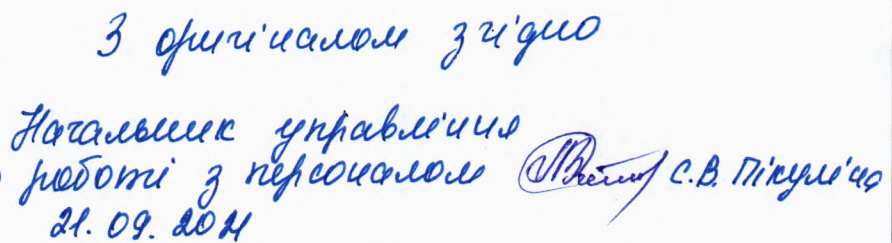 З оригіналом згідно
Начальник управління
роботі з персоналом С.В. Пікуліна
21.09.2021